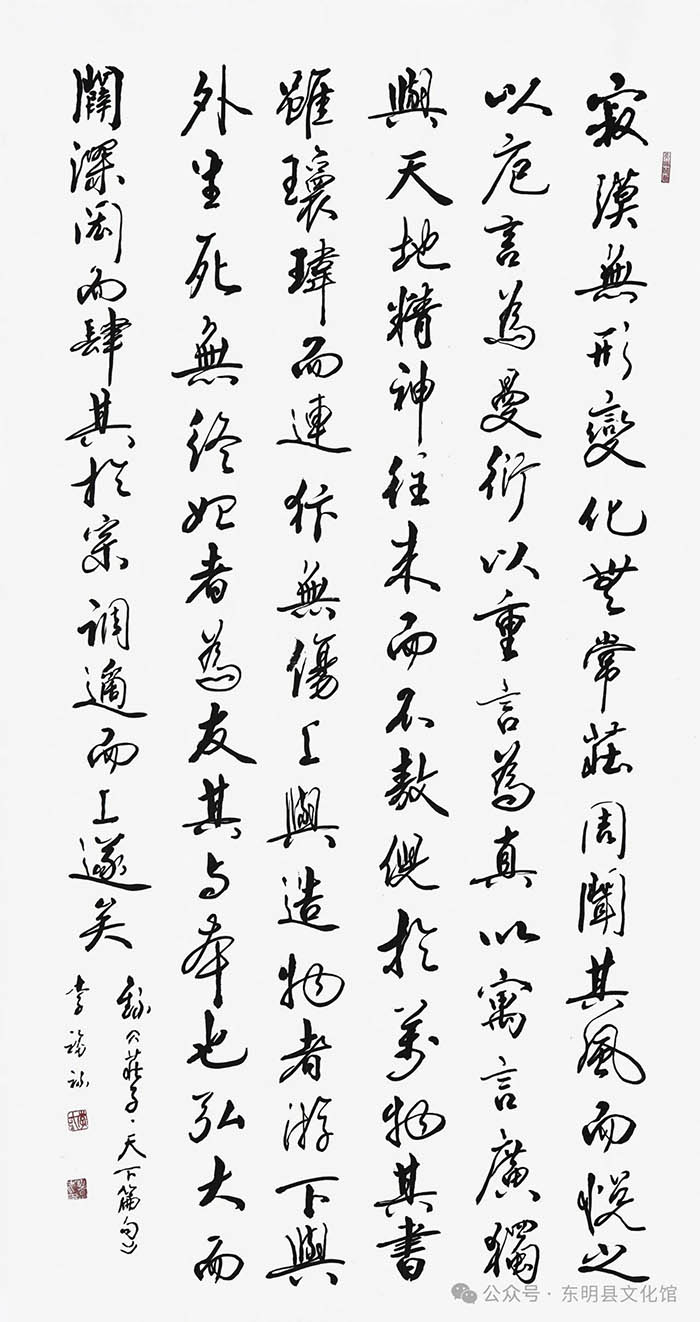 寂漠無形變化無常莊周聞其風而悅之
以卮言為曼衍以重言為真以寓言廣獨
與天地精神往来而不敖倪於萬物其書
雖瓌瑋而連犿無傷上與造物者游下與
外生死無終始者為友其与本也弘大而
闢深閎而肆其於宗調適而上遂矣
錄《莊子·天下篇句》
李福
公众号·东明县文化馆